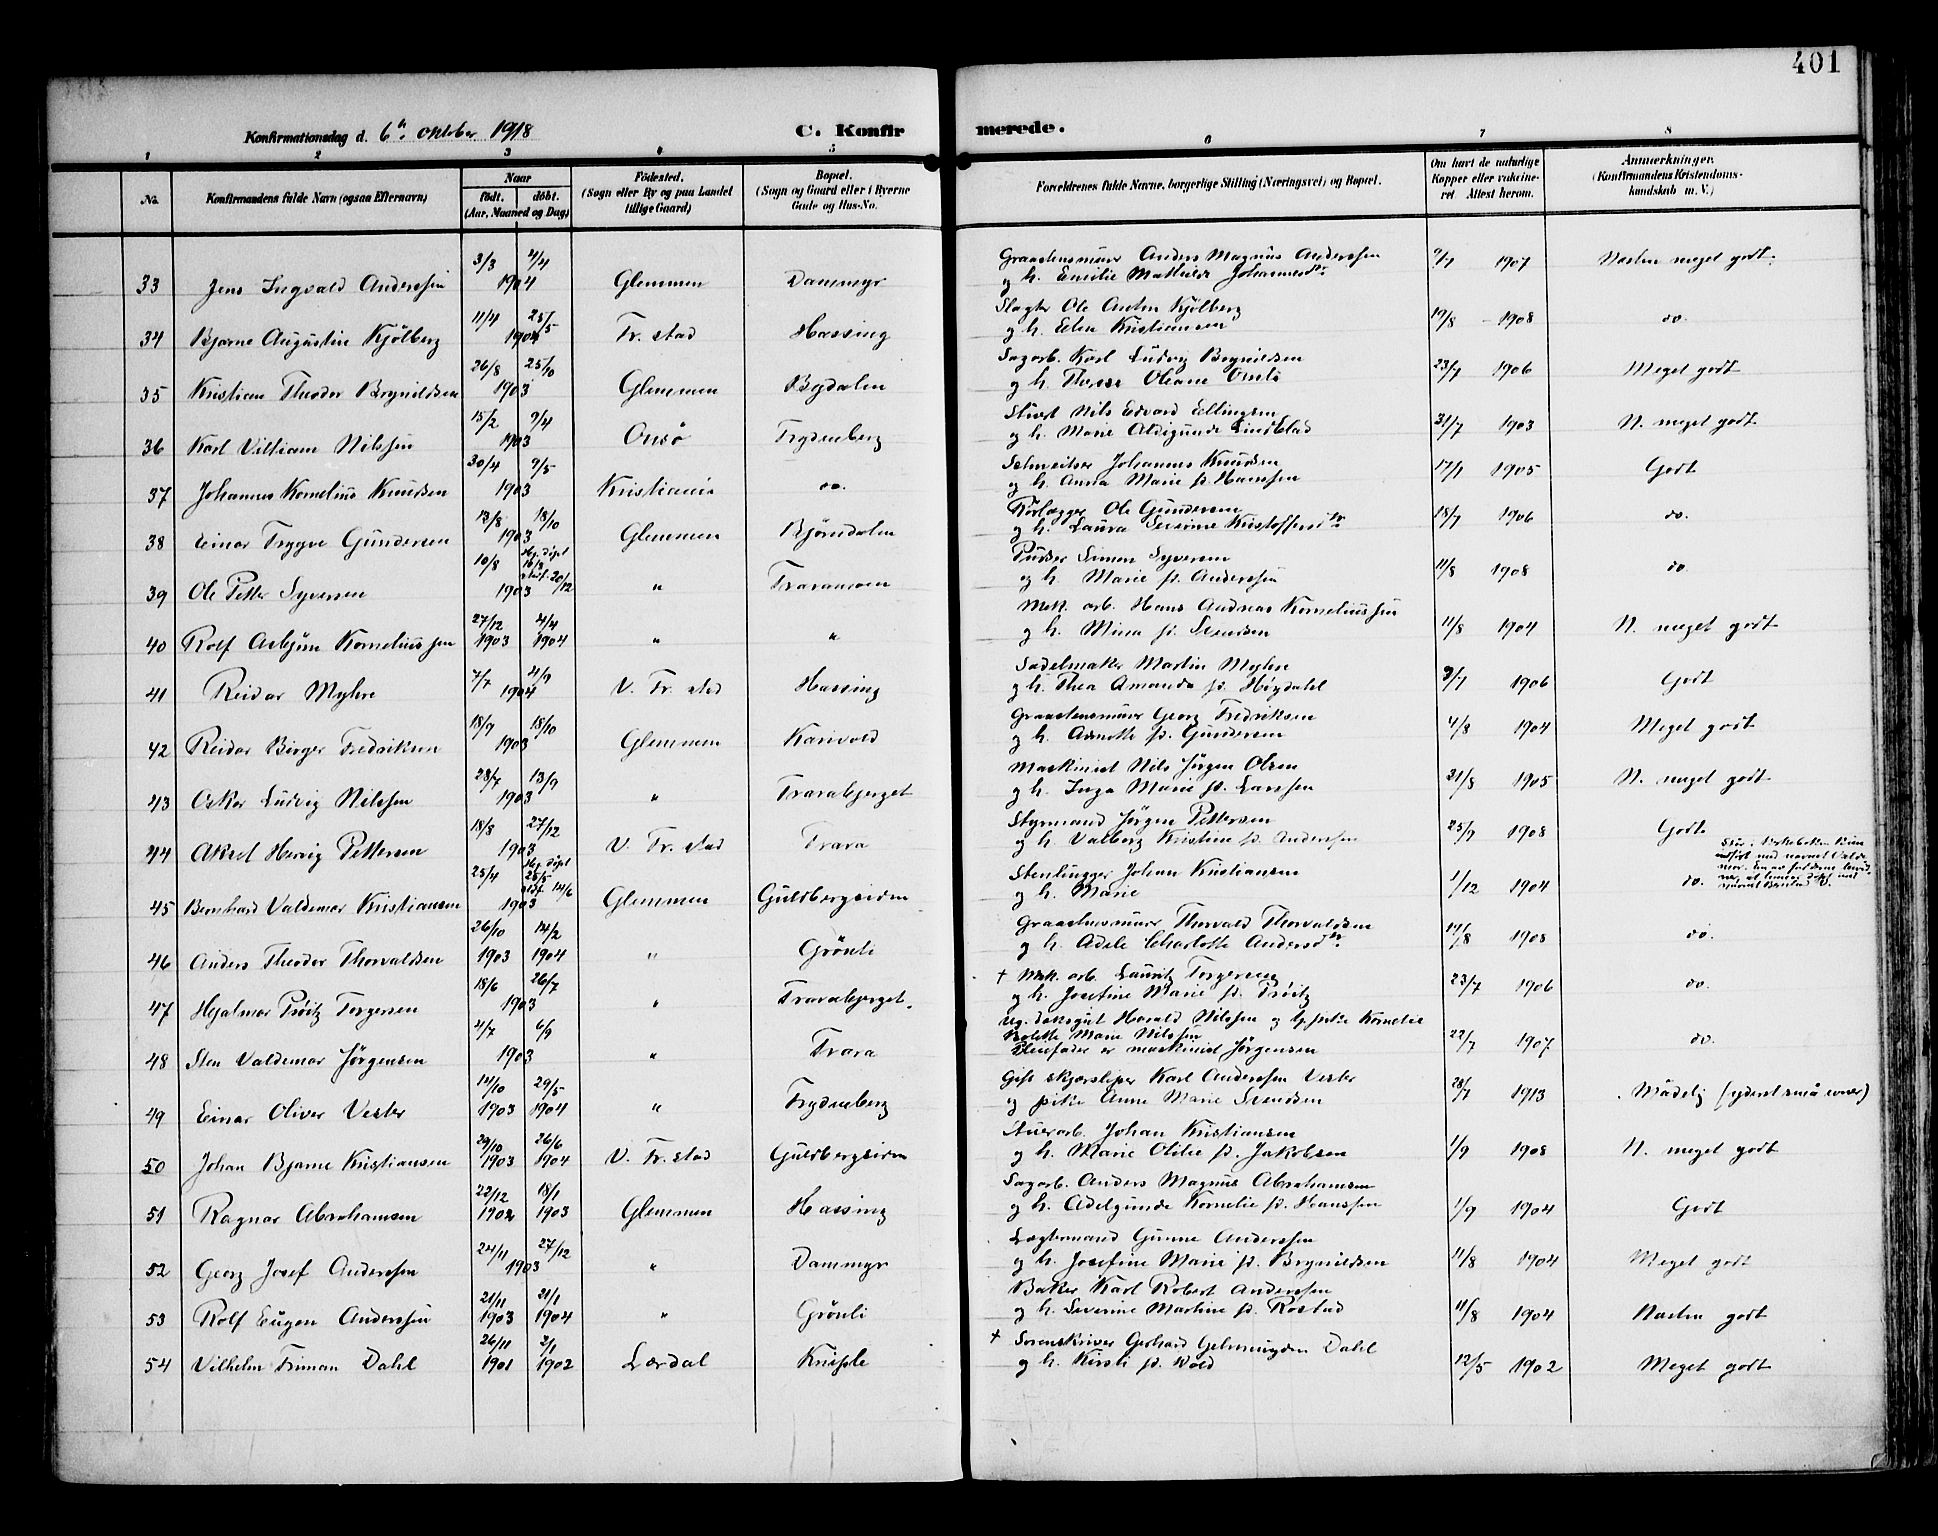 401
Konfirmationsdag d. 6te oktober 1918 C. Konfirmerede.
1 2 3 4 5 6 7 8
No. Konfirmandens fulde Navn (ogsaa Efternavn) Naar født. døbt. (Aar, Maaned og Dag) Fødested. (Sogn eller By og paa Landet tillige Gaard) Bopæl. (Sogn og Gaard eller i Byerne Gade og Hus-No. Forældrenes fulde Navne, borgerlige Stilling (Næringsvei) og Bopæl. Om havt de naturlige Kopper eller vaksineret Attest herom. Anmerkninger. (Konfirmandens Kristendomskundskab m. V.)
33 Jens Ingvald Anderssen 3/3 4/4 1904 Glemmen Dammyr Graastensmurer Anders Magnus Anderssen
og h. Emilie Mathilde Johannesdtr 9/7 1907 Næsten meget godt.
34 Bjarne Augustin Kjølberg 11/4 25/5 1904 Fr.stad Hassing Slagter Ole Anton Kjølberg
og h. Elen Kristiansen 19/8 1908 do.
35 Kristian Theodor Brynildsen 26/8 25/10 1903 Glemmen Bydalen Sagarb. Karl Ludvig Brynildsen
og h. Therese Oleane 23/7 1906 Meget godt
36 Karl Villiam Nilssen 15/2 9/4 1903 Onsø Frydenberg Nils Edvard Ellingsen
og h. Marie Aldigunde Lindblad 31/7 1903 N. meget godt
37 Johannes Kornelius Knudsen 30/4 9/5 1903 Kristiania do. Johannes Knudsen
og h. Anna Marie f. Hanssen 17/7 1905 Godt
38 Einar Trygve Gundersen 13/8 18/10 1903 Glemmen Bjørndalen Rørlægger Ole Gundersen
og h. Laura Severine Kristoffersdtr 18/7 1906 do.
39 Ole Petter Syversen 10/8 Hj. døpt 16/8 stadf. 20/12 1903 " Traramoen Pudser Simon Syversen
og h. Marie f. Anderssen 11/8 1908 do
40 Rolf Asbjørn Korneliussen 27/12 1903 4/4 1904 " " Mek. arb. Hans Andreas Korneliussen
og h. Mina f. Svendsen 11/8 1904 N. meget godt
41 Reidar Myhre 7/7 4/9 1904 V. Fr.stad Hassing Sadelmaker Martin Myhre
og h. Thea Amanda f. Høydahl 3/7 1906 Godt
42 Reidar Birger Fredriksen 18/9 18/10 1903 Glemmen Karivold Graastensmurer Georg Fredriksen
og h. Agnette f. Gundersen 4/8 1904 Meget godt
43 Oskar Ludvig Nilssen 23/7 13/9 1903 " Trarabjerget Maskinist Nils Jørgen Olsen
og h. Inga Marie f. Larssen 31/8 1905 N. meget godt
44 Aksel Hervig Pettersen 18/8 27/12 1903 V. Fr.stad Trara Styrmand Jørgen Pettersen
og h. Valborg Kristine f. Anderssen 25/7 1908 Godt
45 Bernhard Valdemar Kristiansen 25/4 Hj. døpt 25/5 stdf. 14/6 1903 Glemmen Guldbergsiden Stenhugger Johan Kristiansen
og h. Marie 1/12 1904 do.
46 Anders Theodor Thorvaldsen 26/10 1903 14/2 1904 " Grønli Graastensmurer Thorvald Thorvaldsen
og h. Adele Charlotte Andersdtr. 14/8 1908 do.
47 Hjalmar Prøitz Torgersen 18/6 26/7 1903 " Trarabjerget. † Mek. arb. Lauritz Torgersen
og h. Josefine Marie f. Prøitz 23/7 1906 do.
48 Sten Valdemar Jørgensen 4/7 6/9 1903 " Trara Ug. Harald Nilssen og pike Kornelie
Marie Nilssen
Pleiefader er maskinist Jørgensen 22/7 1907 do.
49 Einar Oliver Vester 14/10 1903 29/5 1904 " Frydenberg Gift skjærsliper Karl Anderssen Vester
og pike Anne Marie Svendsen 28/7 1913 Mådelig (yderst små evner)
50 Johan Bjarne Kristiansen 29/10 1903 26/6 1904 V. Fr.stad Guldbergsiden Stuerarb. Johan Kristiansen
og h. Marie Otilie f. Jakobsen 1/9 1908 N. meget godt
51 Ragnar Abrahamsen 22/12 1902 18/1 1903 Glemmen Hassing Sagarb. Anders Magnus Abrahamsen
og h. Adelgunde Kornelie f. Hanssen 1/9 1904 Godt
52 Georg Josef Anderssen 24/11 27/12 1903 " Dammyr Lægtermand Gunne Anderssen
og h. Josefine Marie f. Brynildsen 11/8 1904 Meget godt
53 Rolf Eugen Anderssen 21/11 1903 21/1 1904 " Grønli Baker Karl Robert Anderssen
og h. Severine Martine f. Rostad 11/8 1904 Næsten godt
54 Vilhelm Friman Dahl 26/11 1901 2/1 1902 Lærdal Knipple † Sorenskriver Gerhard Gelmuyden Dahl
og h. Kirsti f. Wold 12/5 1902 Meget godt